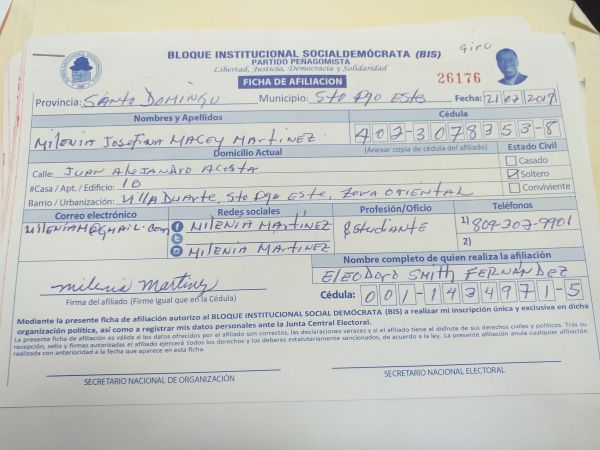 GIRO
BLOQUE INSTITUCIONAL SOCIALDEMÓCRATA (BIS)
PARTIDO PEÑAGOMISTA
Libertad, Justicia, Democracia y Solidaridad
FICHA DE AFILIACION
26176
Provincia: SANTO DOMINGO Municipio: STO DGO ESTE Fecha: 21/07/2019
Nombres y Apellidos Cédula
MILENIA JOSEFINA MACEY MARTINEZ 402-3078353-8
Domicilio Actual (Anexar copia de cédula del afiliado) Estado Civil
Calle: JUAN ALEJANDRO ACOSTA Casado
#Casa / Apt. / Edificio: 10 Soltero
Barrio / Urbanización: VILLA DUARTE, STO DGO ESTE, ZONA ORIENTAL Conviviente
Correo electrónico Redes sociales Profesión/Oficio Teléfonos
MILENIAM@GMAIL.COM MILENIA MARTINEZ ESTUDIANTE 1) 809-707-9901
MILENIA MARTINEZ 2)
Nombre completo de quien realiza la afiliación
Milenia Martinez ELEODORO SMITH FERNÁNDEZ
Firma del afiliado (Firme igual que en la Cédula) Cédula: 001-1434971-5
Mediante la presente ficha de afiliación autorizo al BLOQUE INSTITUCIONAL SOCIAL DEMÓCRATA (BIS) a realizar mi inscripción única y exclusiva en dicha
organización política, así como a registrar mis datos personales ante la Junta Central Electoral.
La presente ficha de afiliación es válida si los datos ofrecidos por el afiliado son correctos, las declaraciones veraces y si el afiliado tiene el disfrute de sus derechos civiles y políticos. Tras su
recepción, sello y firmas autorizadas el afiliado ejercerá todos los derechos y los deberes estatutariamente sancionados, de acuerdo a la ley. La presente afiliación anula cualquier afiliación
realizada con anterioridad a la fecha que aparece en esta ficha.
SECRETARIO NACIONAL DE ORGANIZACIÓN SECRETARIO NACIONAL ELECTORAL